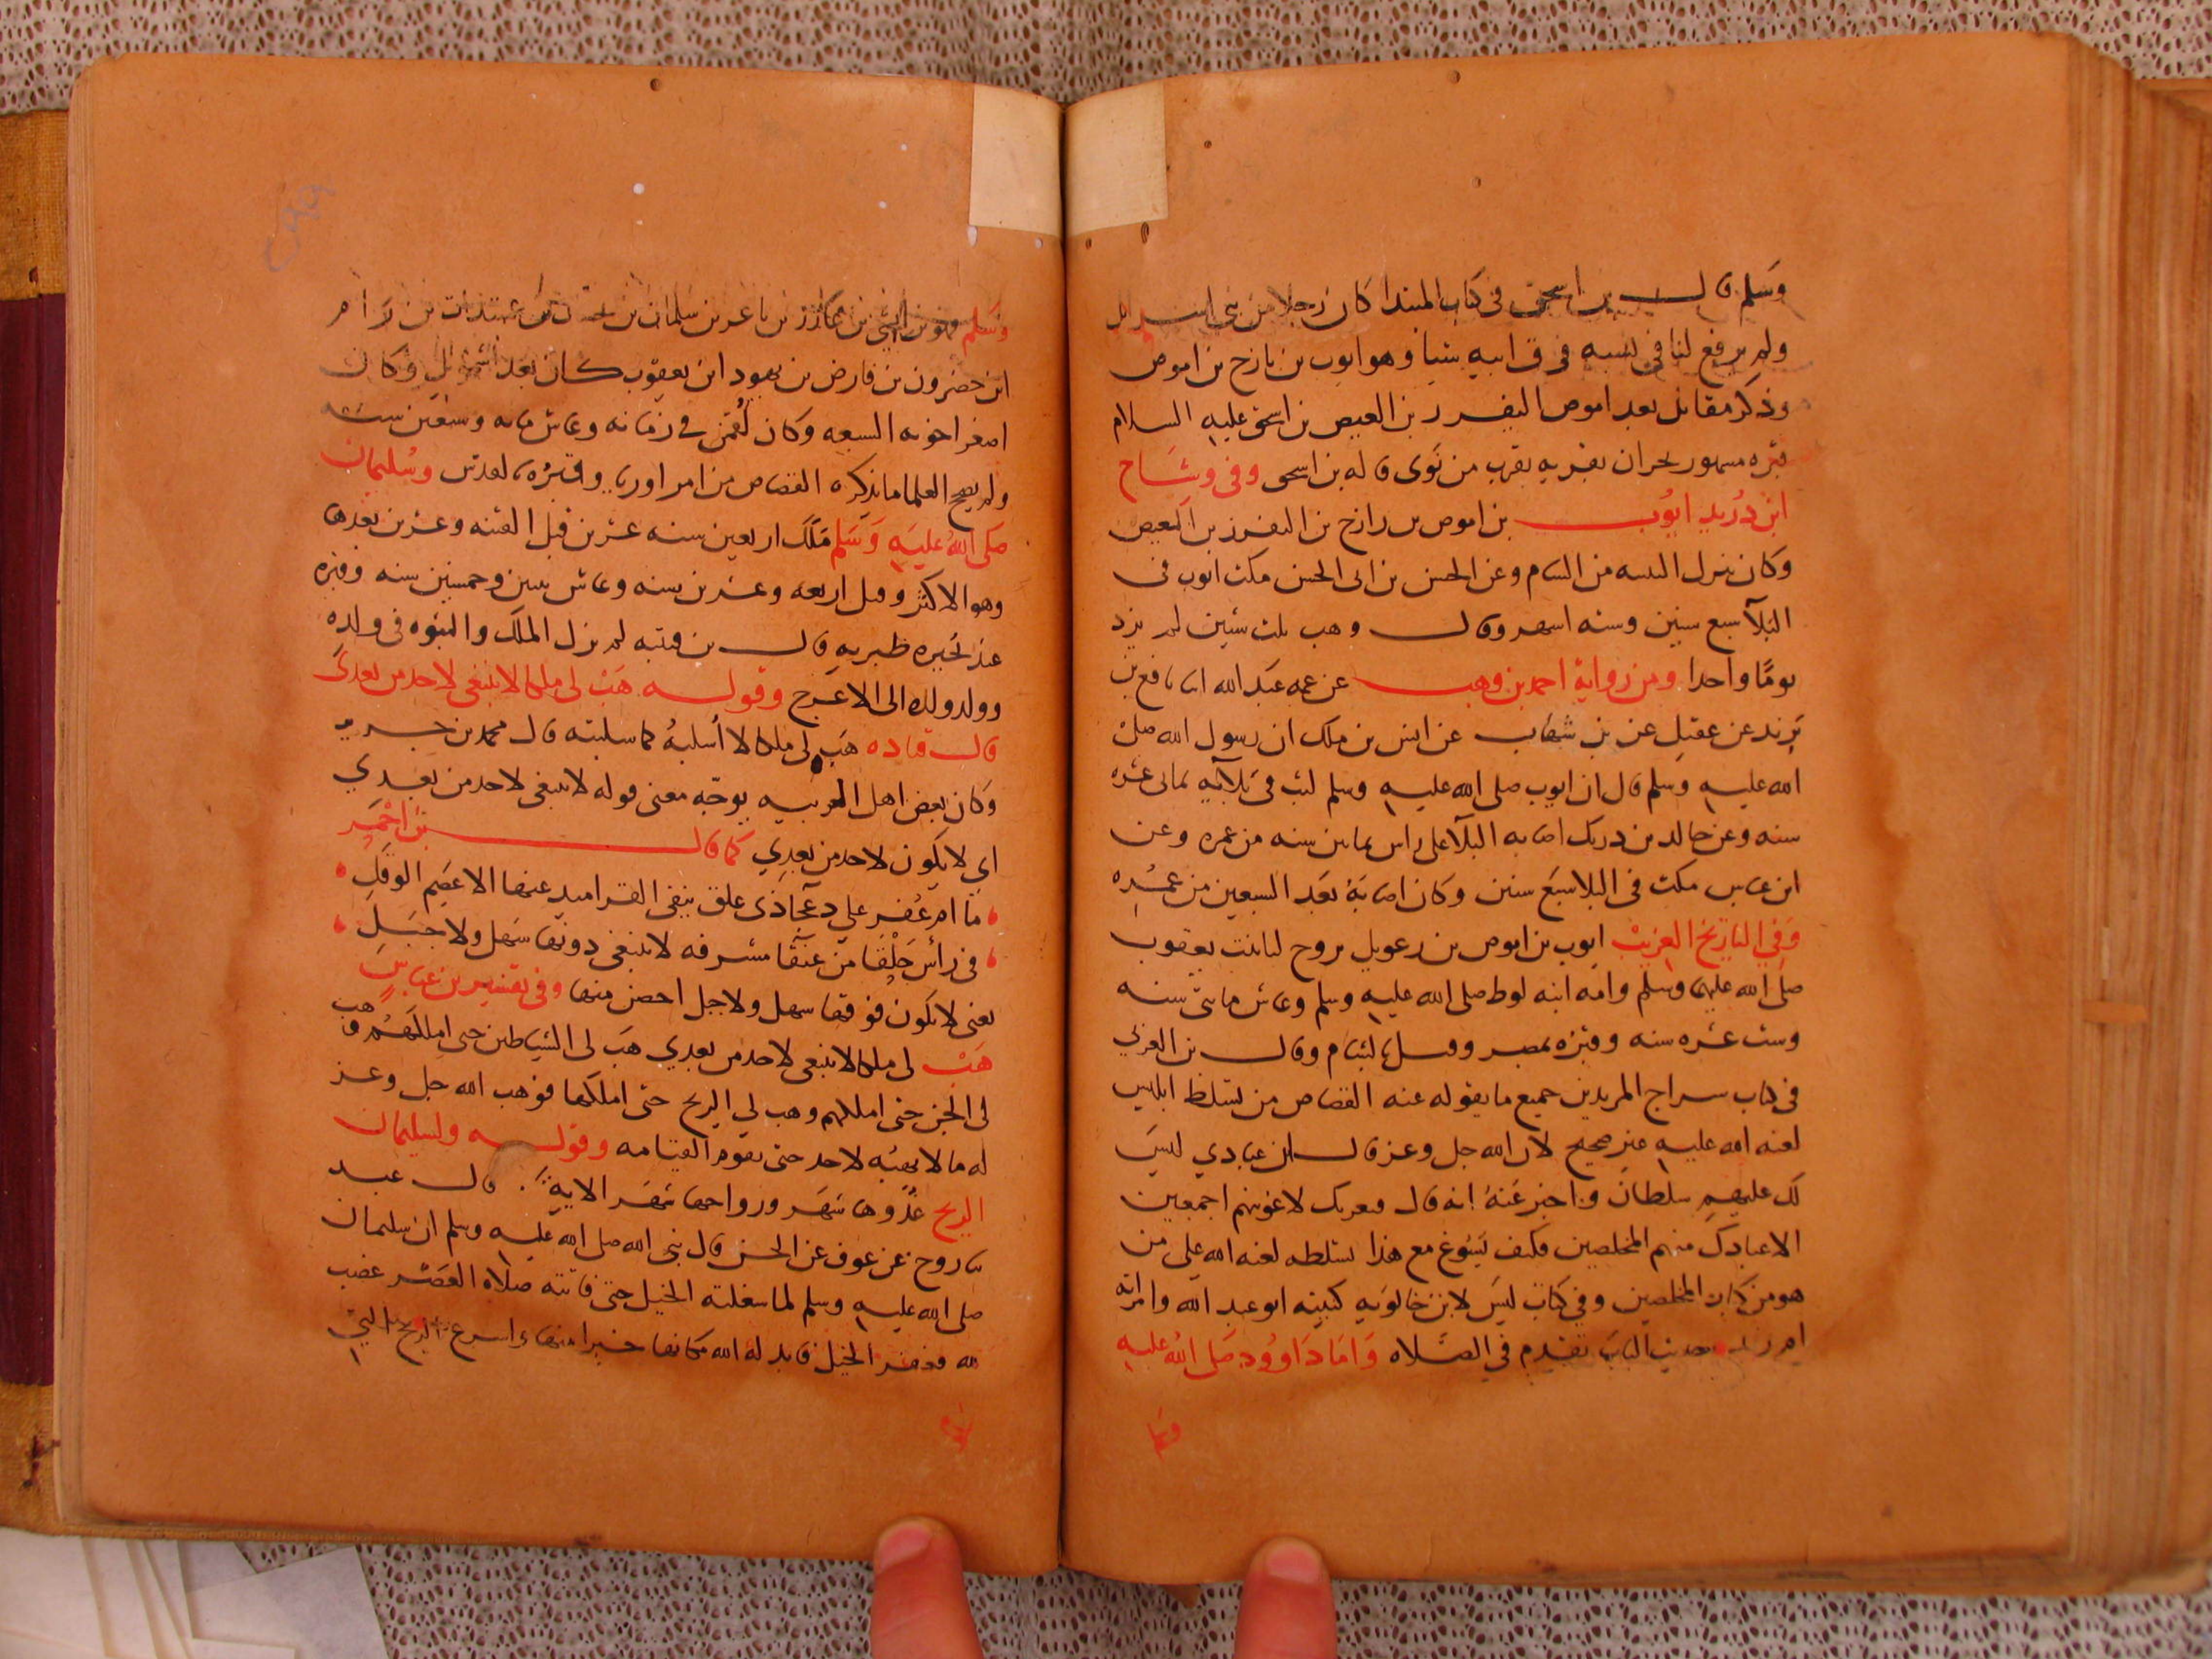 وسلم قال بن اسحق في كتاب المبتدا كان رجلا من بني اسرائل
ولم يرفع لنا في نسبه فوق ابيه شيا وهو ايوب بن نازح بن اموص
وذكر مقاتل بعد اموص اليفرر بن العيص بن اسحق عليه السلام
قبره مسهور بحران بقريه بقرب من نوى قاله بن اسحى وفي وشاح
ابن دريد ايوب بن اموص بن رازح بن اليفرز بن العيص
وكان ينزل البسه من الشام وعن الحسن بن ابى الحسن مكث ايوب في
البلآ سبع سنين وسته اسهر وقال وهب ثلث سنين لم يزد
يوما واحدا ومن رواية احمد بن وهب عن عمه عبد الله انا نافع بن
يزيد عن عقيل عن بن شهاب عن انس بن ملك ان رسول الله صلى
الله عليه وسلم قال ان ايوب صلى الله عليه وسلم لبث في بلائيه ثمانى عشره
سنه وعن خالد بن دريك اصابه البلآ على راس ثمانين سنه من عمره وعن
ابن عباس مكث في البلا سبع سنين وكان اصابة بعد السبعين من عمره
وفي التاريخ الغريب ايوب بن اموص بن رعويل تروح ليا بنت يعقوب
صلى الله عليهما وسلم وامه ابنه لوط صلى الله عليه وسلم وعاش مائتي سنه
وست عشره سنه وقبره بمصر وقيل بالشام وقال بن العربي
في كتاب سراج المريدين جميع ما يقوله عنه القصاص من تسلط ابليس
لعنه الله عليه غير صحيح لان الله جل وعز قال ان عبادي ليس
لك عليهم سلطان واخبر عنه انه قال فبعزتك لاغوينهم اجمعين
الا عبادك منهم المخلصين فكيف يسوغ مع هذا تسلطه لعنه الله على من
هو من كبار المخلصين وفي كتاب ليس لابن خالويه كنيته ابو عبد الله وامراته
حديث الباب تقدم في الصلاه واما داوود صلى الله عليه
وسلم فهو بن ايشي بن عاذر بن باعر بن سلمان بن عيناذاب بن رام
ابن حضرون بن فارض بن يهود ابن يعقوب كان بعد اشمويل وكان
اصغر اخوته السبعه وكان لقمن في زمانه وعاش مايه وسبعين سنه
ولم يصح العلما ما يذكره القصاص من امر اوريا وقبره بالقدس وسليمان
صلى الله عليه وسلم ملك اربعين سنه عشرين قبل الفتنه وعشرين بعدها
وهو الاكثر وقيل اربعه وعشرين سنه وعاش ثنتين وخمسين سنه وقبره
عند بحيره طبريه قال بن قتيبه لم يزل الملك والنبوه في ولده
وولد ولده الى الاعرج وقوله هب لى ملكا لا ينبغي لاحد من بعدي
قال قتاده هب لى ملكا لا أسلبه كما سلبته قال محمد بن جرير
وكان بعض اهل العربيه يوجه معنى قوله لا ينبغي لاحد من بعدي
اي لا يكون لاحد من بعدي كما قال بن احمر
ما ام غفر على دعجا ذى علق ينفي القراميد عنها الاعصم الوقل
في رأس خلقا من عنقا مشرفه لا ينبغي دونها سهل ولا جبل
يعنى لا يكون فوقها سهل ولا جبل احصن منها وفي تفسير بن عباس
هب لى ملكا لا ينبغي لاحد من بعدي هب لى الشياطين حتى املكهم وهب
لى الجن حتى املكهم وهب لي الريح حتى املكها فوهب الله جل وعز
له ما لا يهبه لاحد حتى تقوم القيامه وقوله ولسليمان
الريح غدوها شهر ورواحها شهر الايه قال عبد
ثنا روح عن عوف عن الحسن قال نبى الله صلى الله عليه وسلم ان سليمان
صلى الله عليه وسلم لما شغلته الخيل حتى فاتته صلاة العصر غضب
لله فعقر الخيل فابدله الله مكانها خيرا منها واسرع الريح التي